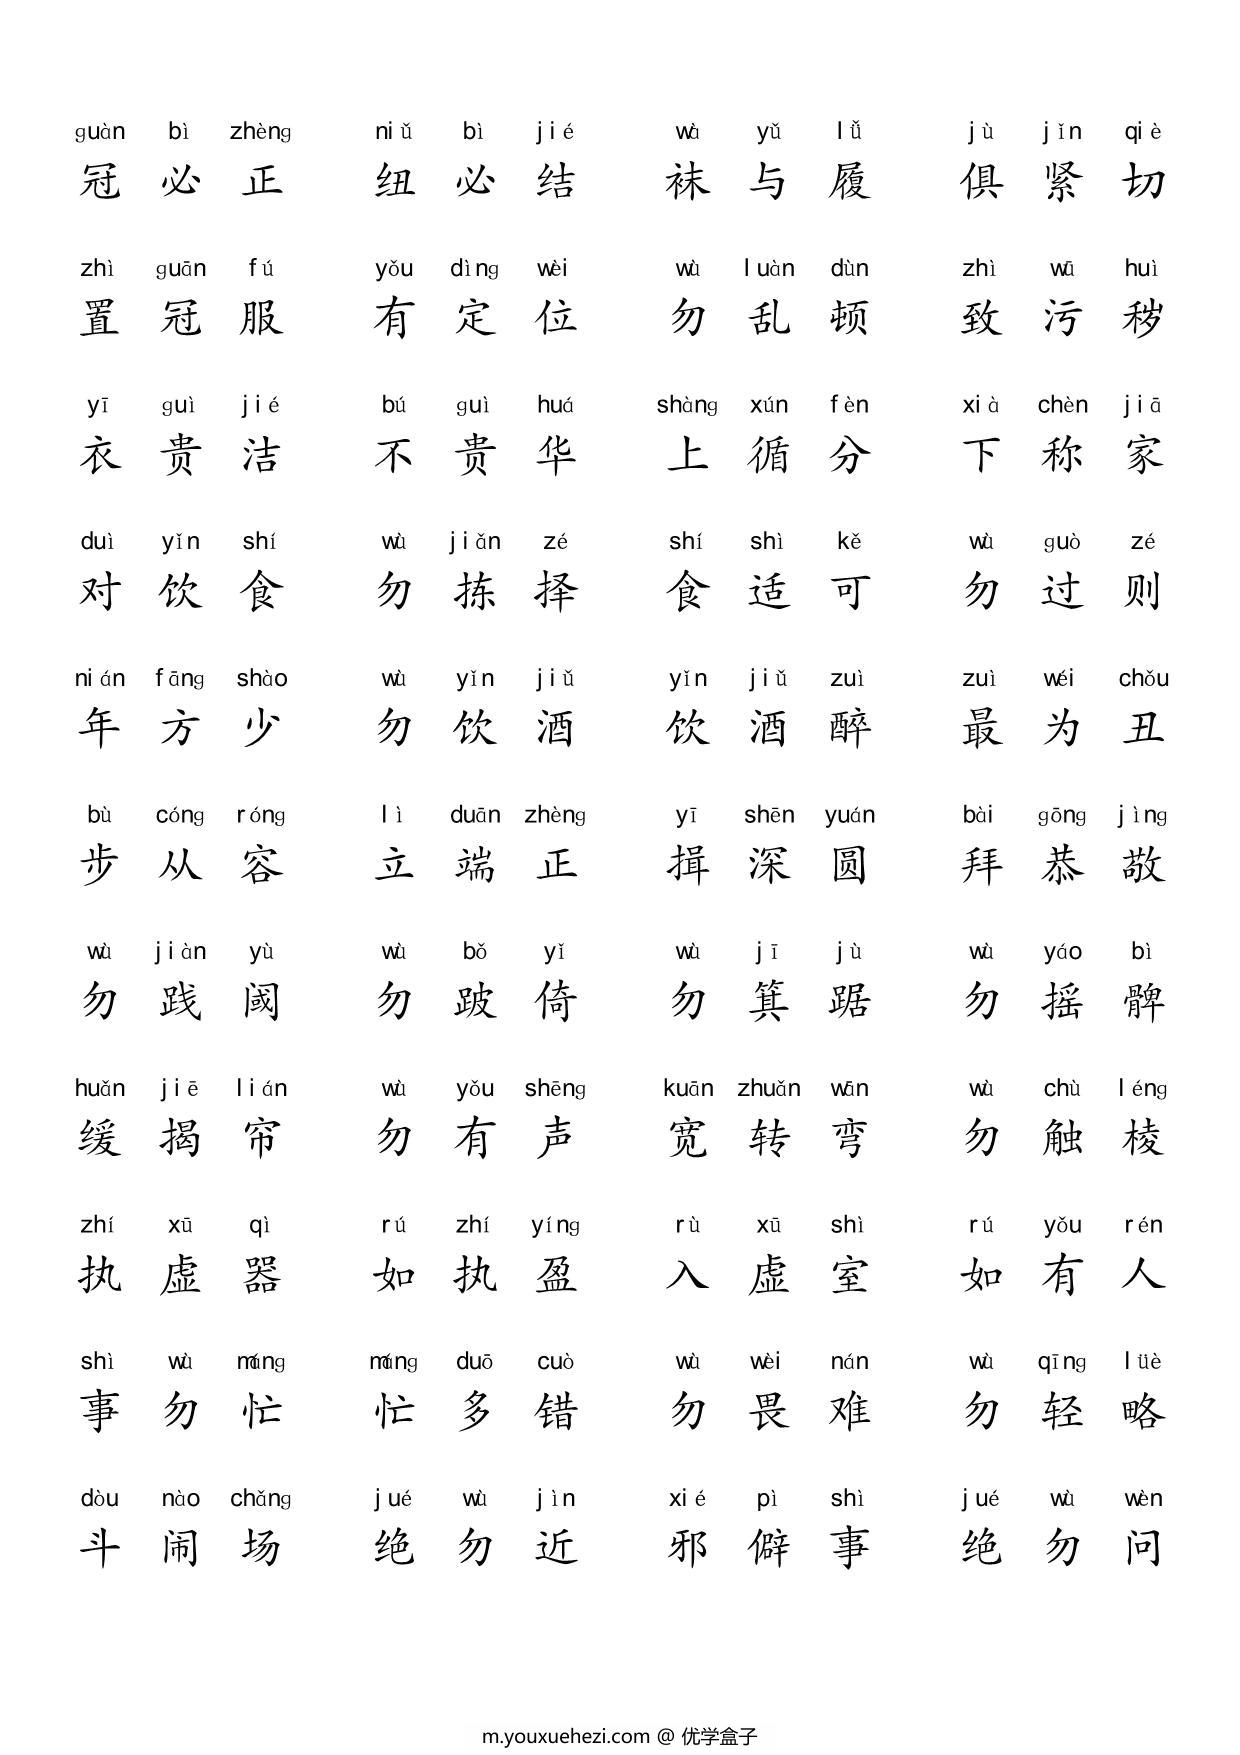 guàn bì zhèng niǔ bì jié wà yǔ lǚ jù jǐn qiè
冠必正 纽必结 袜与履 俱紧切
zhì guān fú yǒu dìng wèi wù luàn dùn zhì wū huì
置冠服 有定位 勿乱顿 致污秽
yī guì jié bú guì huá shàng xún fèn xià chèn jiā
衣贵洁 不贵华 上循分 下称家
duì yǐn shí wù jiǎn zé shí shì kě wù guò zé
对饮食 勿拣择 食适可 勿过则
nián fāng shào wù yǐn jiǔ yǐn jiǔ zuì zuì wéi chǒu
年方少 勿饮酒 饮酒醉 最为丑
bù cóng róng lì duān zhèng yī shēn yuán bài gōng jìng
步从容 立端正 揖深圆 拜恭敬
wù jiàn yù wù bǒ yǐ wù jī jù wù yáo bì
勿践阈 勿跛倚 勿箕踞 勿摇髀
huǎn jiē lián wù yǒu shēng kuān zhuǎn wān wù chù léng
缓揭帘 勿有声 宽转弯 勿触棱
zhí xū qì rú zhí yíng rù xū shì rú yǒu rén
执虚器 如执盈 入虚室 如有人
shì wù máng máng duō cuò wù wèi nán wù qīng lüè
事勿忙 忙多错 勿畏难 勿轻略
dòu nào chǎng jué wù jìn xié pì shì jué wù wèn
斗闹场 绝勿近 邪僻事 绝勿问
m.youxuehezi.com @ 优学盒子